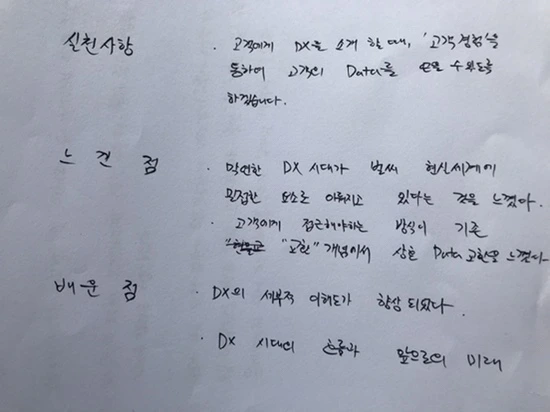 실천사항 · 고객에게 DX를 소개 할 때, '고객경험'을
통하여 고객의 Data를 모을 수 있도록
하겠습니다.
느낀 점 · 막연한 DX 시대가 벌써 현실세계에
밀접한 요소로 이뤄지고 있다는 것을 느꼈다.
· 고객에게 접근해야하는 방식이 기존
"교환" 개념에서 상호 Data 교환을 느꼈다
배운 점 · DX의 세부적 이해도가 향상 되었다.
· DX 시대의 흐름과 앞으로의 미래